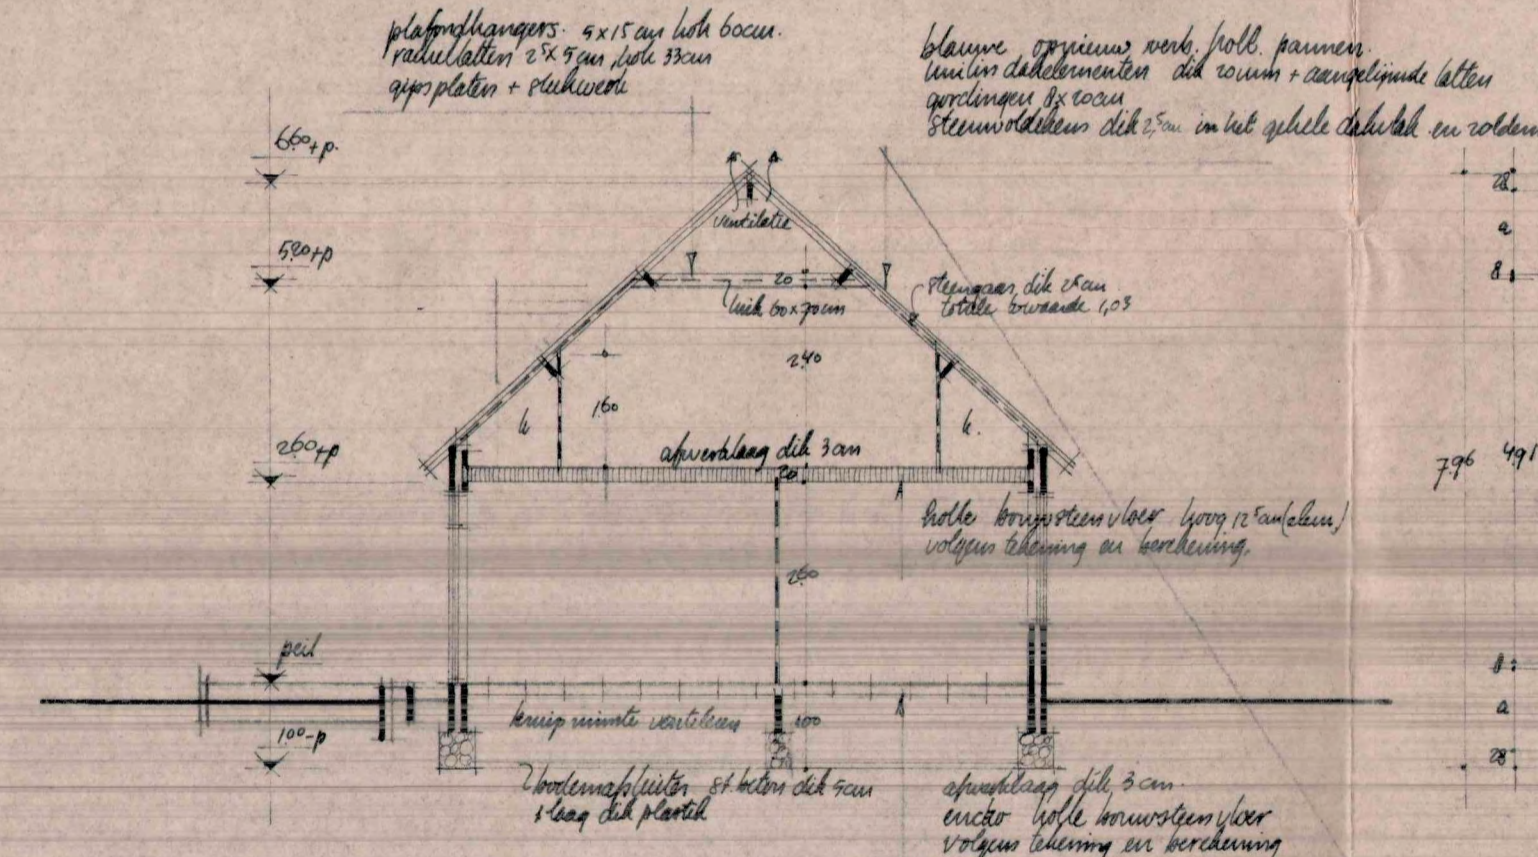 plafondhangers. 5x15cm hoh 60cm.
rachellatten 2⁵x5cm, hoh 33cm
gipsplaten + stukwerk
blauwe opnieuw verb. holl. pannen.
dakelementen dik 20mm + aangelijmde latten
gordingen 8x20cm
steenwoldekens dik 2,⁵cm in het gehele dakvlak en zolderv
660+p.
28
ventilatie
a
520+p
20
8
steengaas dik 2⁵cm
luik 60x70cm
totale kwaarde 1,03
240
160
k
k.
260+p
afwerklaag dik 3cm
20
796 491
holle bouwsteenvloer hoog 12⁵cm (elem.)
volgens tekening en berekening.
260
peil
8
a
kruipruimte ventileren
100
100-p
28
bodemafsluiter st. beton dik 5cm
1 laag dik plastik
afwerklaag dik 3cm.
holle bouwsteenvloer
volgens tekening en berekening